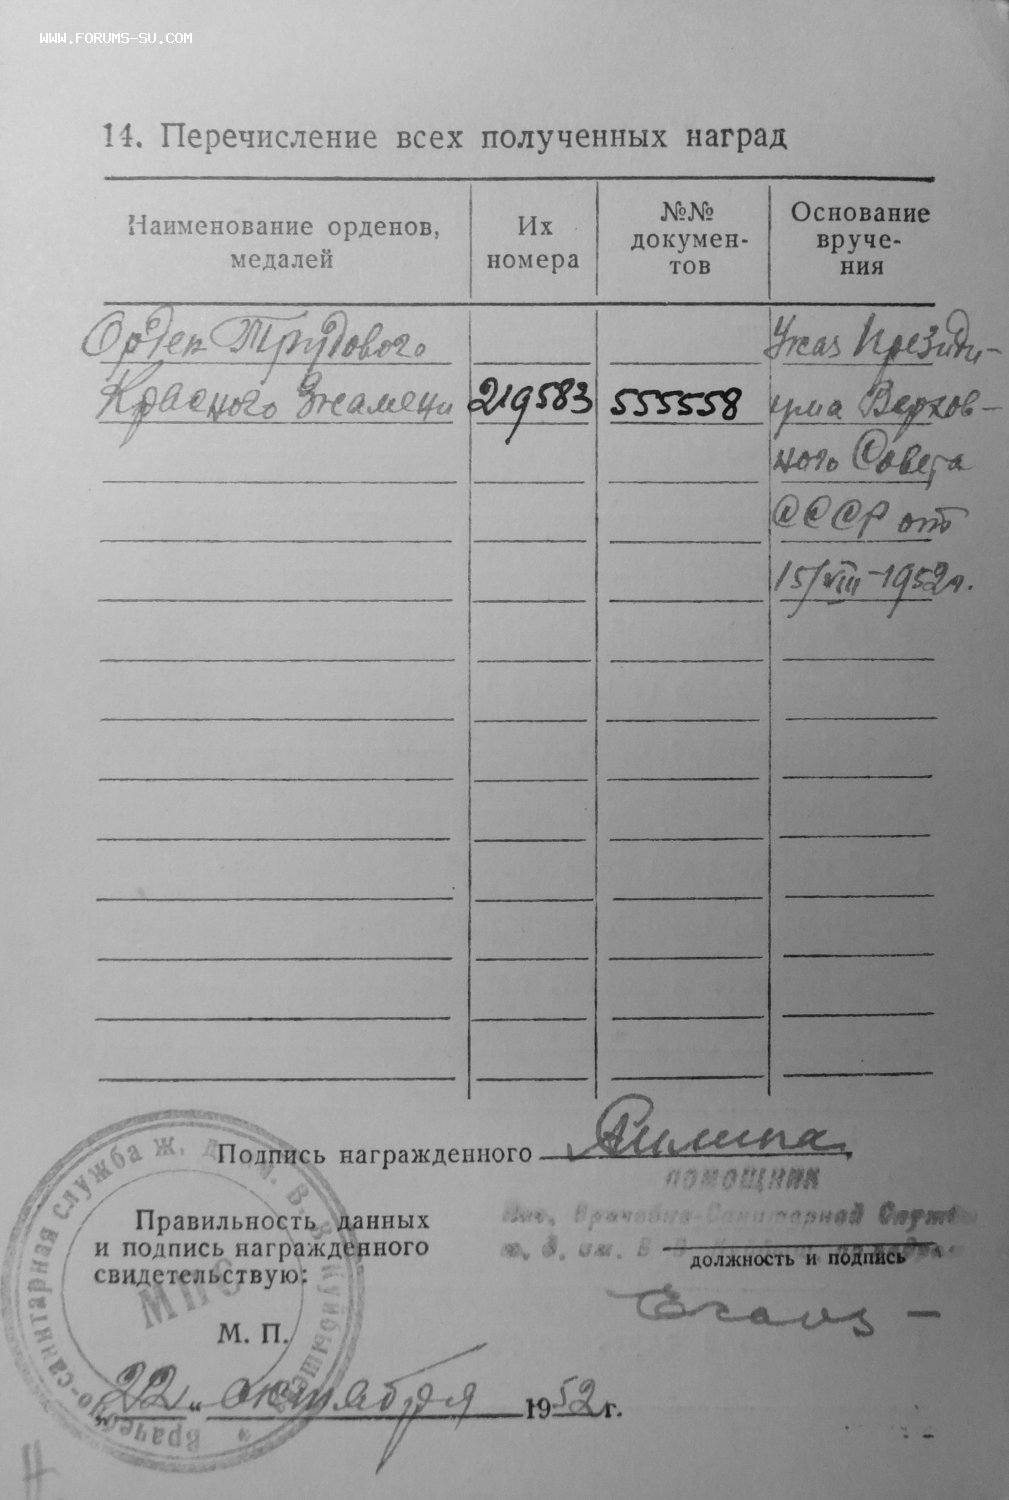 WWW.FORUMS-SU.COM
14. Перечисление всех полученных наград
Наименование орденов,
медалей
Их
номера
№№
докумен-
тов
Основание
вруче-
ния
Орден Трудового
Красного Знамени 219583 555558
Указ Президи-
ума Верхов-
ного Совета
СССР от
15/VIII-1952г.
Подпись награжденного
ПОМОЩНИК
Врачебно-Санитарной Службы
ж. д. им. В. В.
должность и подпись
Правильность данных
и подпись награжденного
свидетельствую:
М. П.
"22" октября 1952 г.
Врачебно-санитарная служба ж. д. им. В. В. Куйбышева
МПС